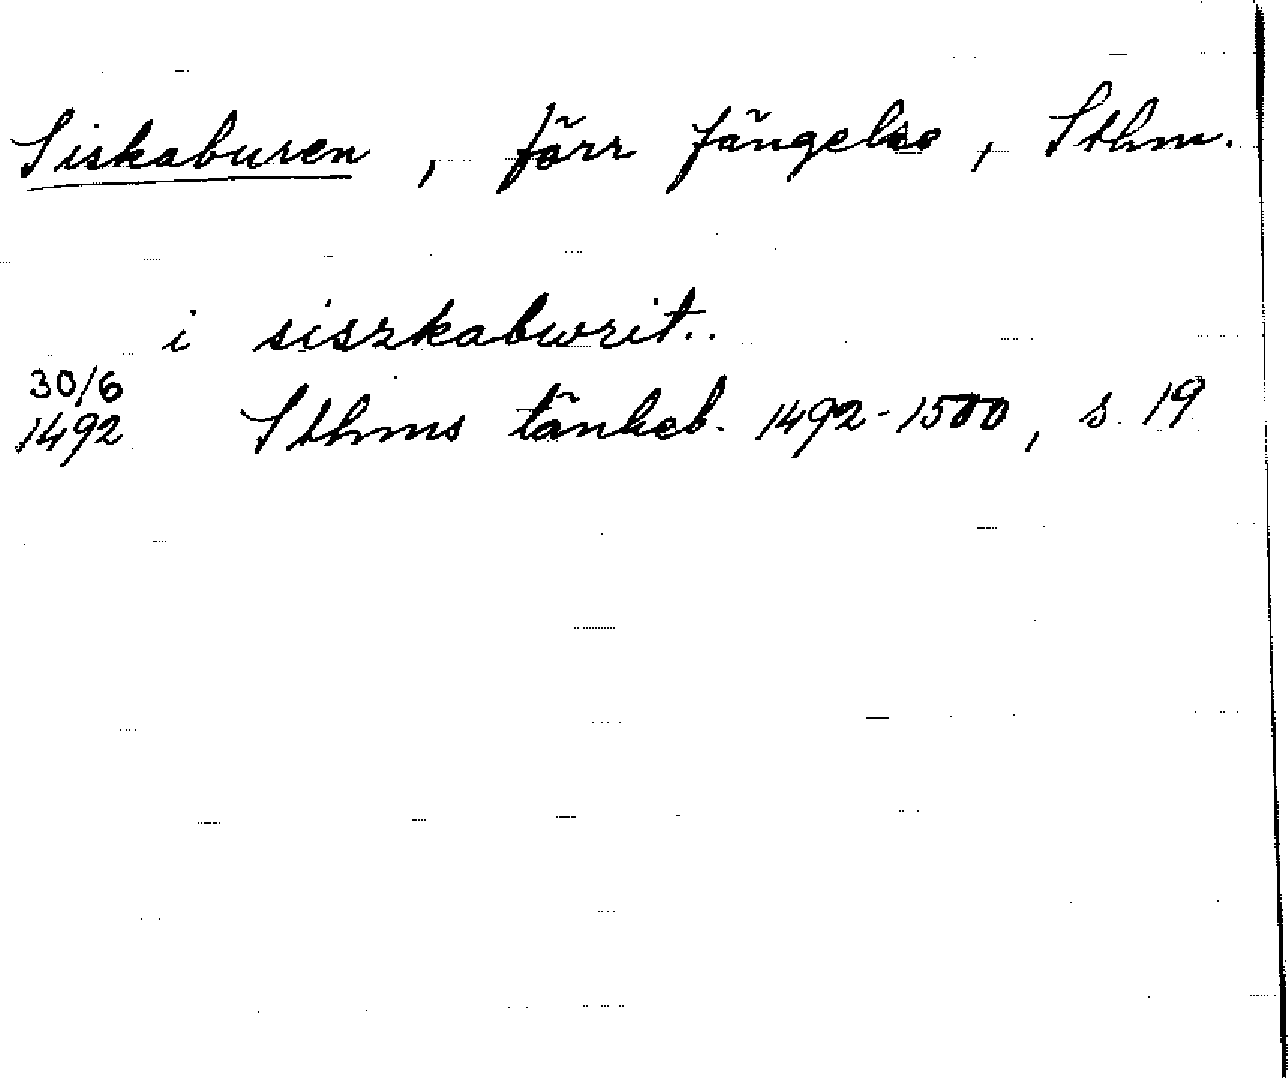 Siskaburen, förr fängelse, Sthm.
i siszkabwrit..
30/6
1492 Sthms tänkeb. 1492-1500, s. 19